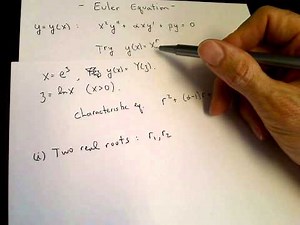 - Euler Equation -
y=y(x): x²y" + αxy' + βy = 0
Try y(x) = x^r
x = e^z, y(x) = Y(z).
z = ln x (x>0).
characteristic eq. r² + (α-1)r +
(i) Two real roots: r₁, r₂